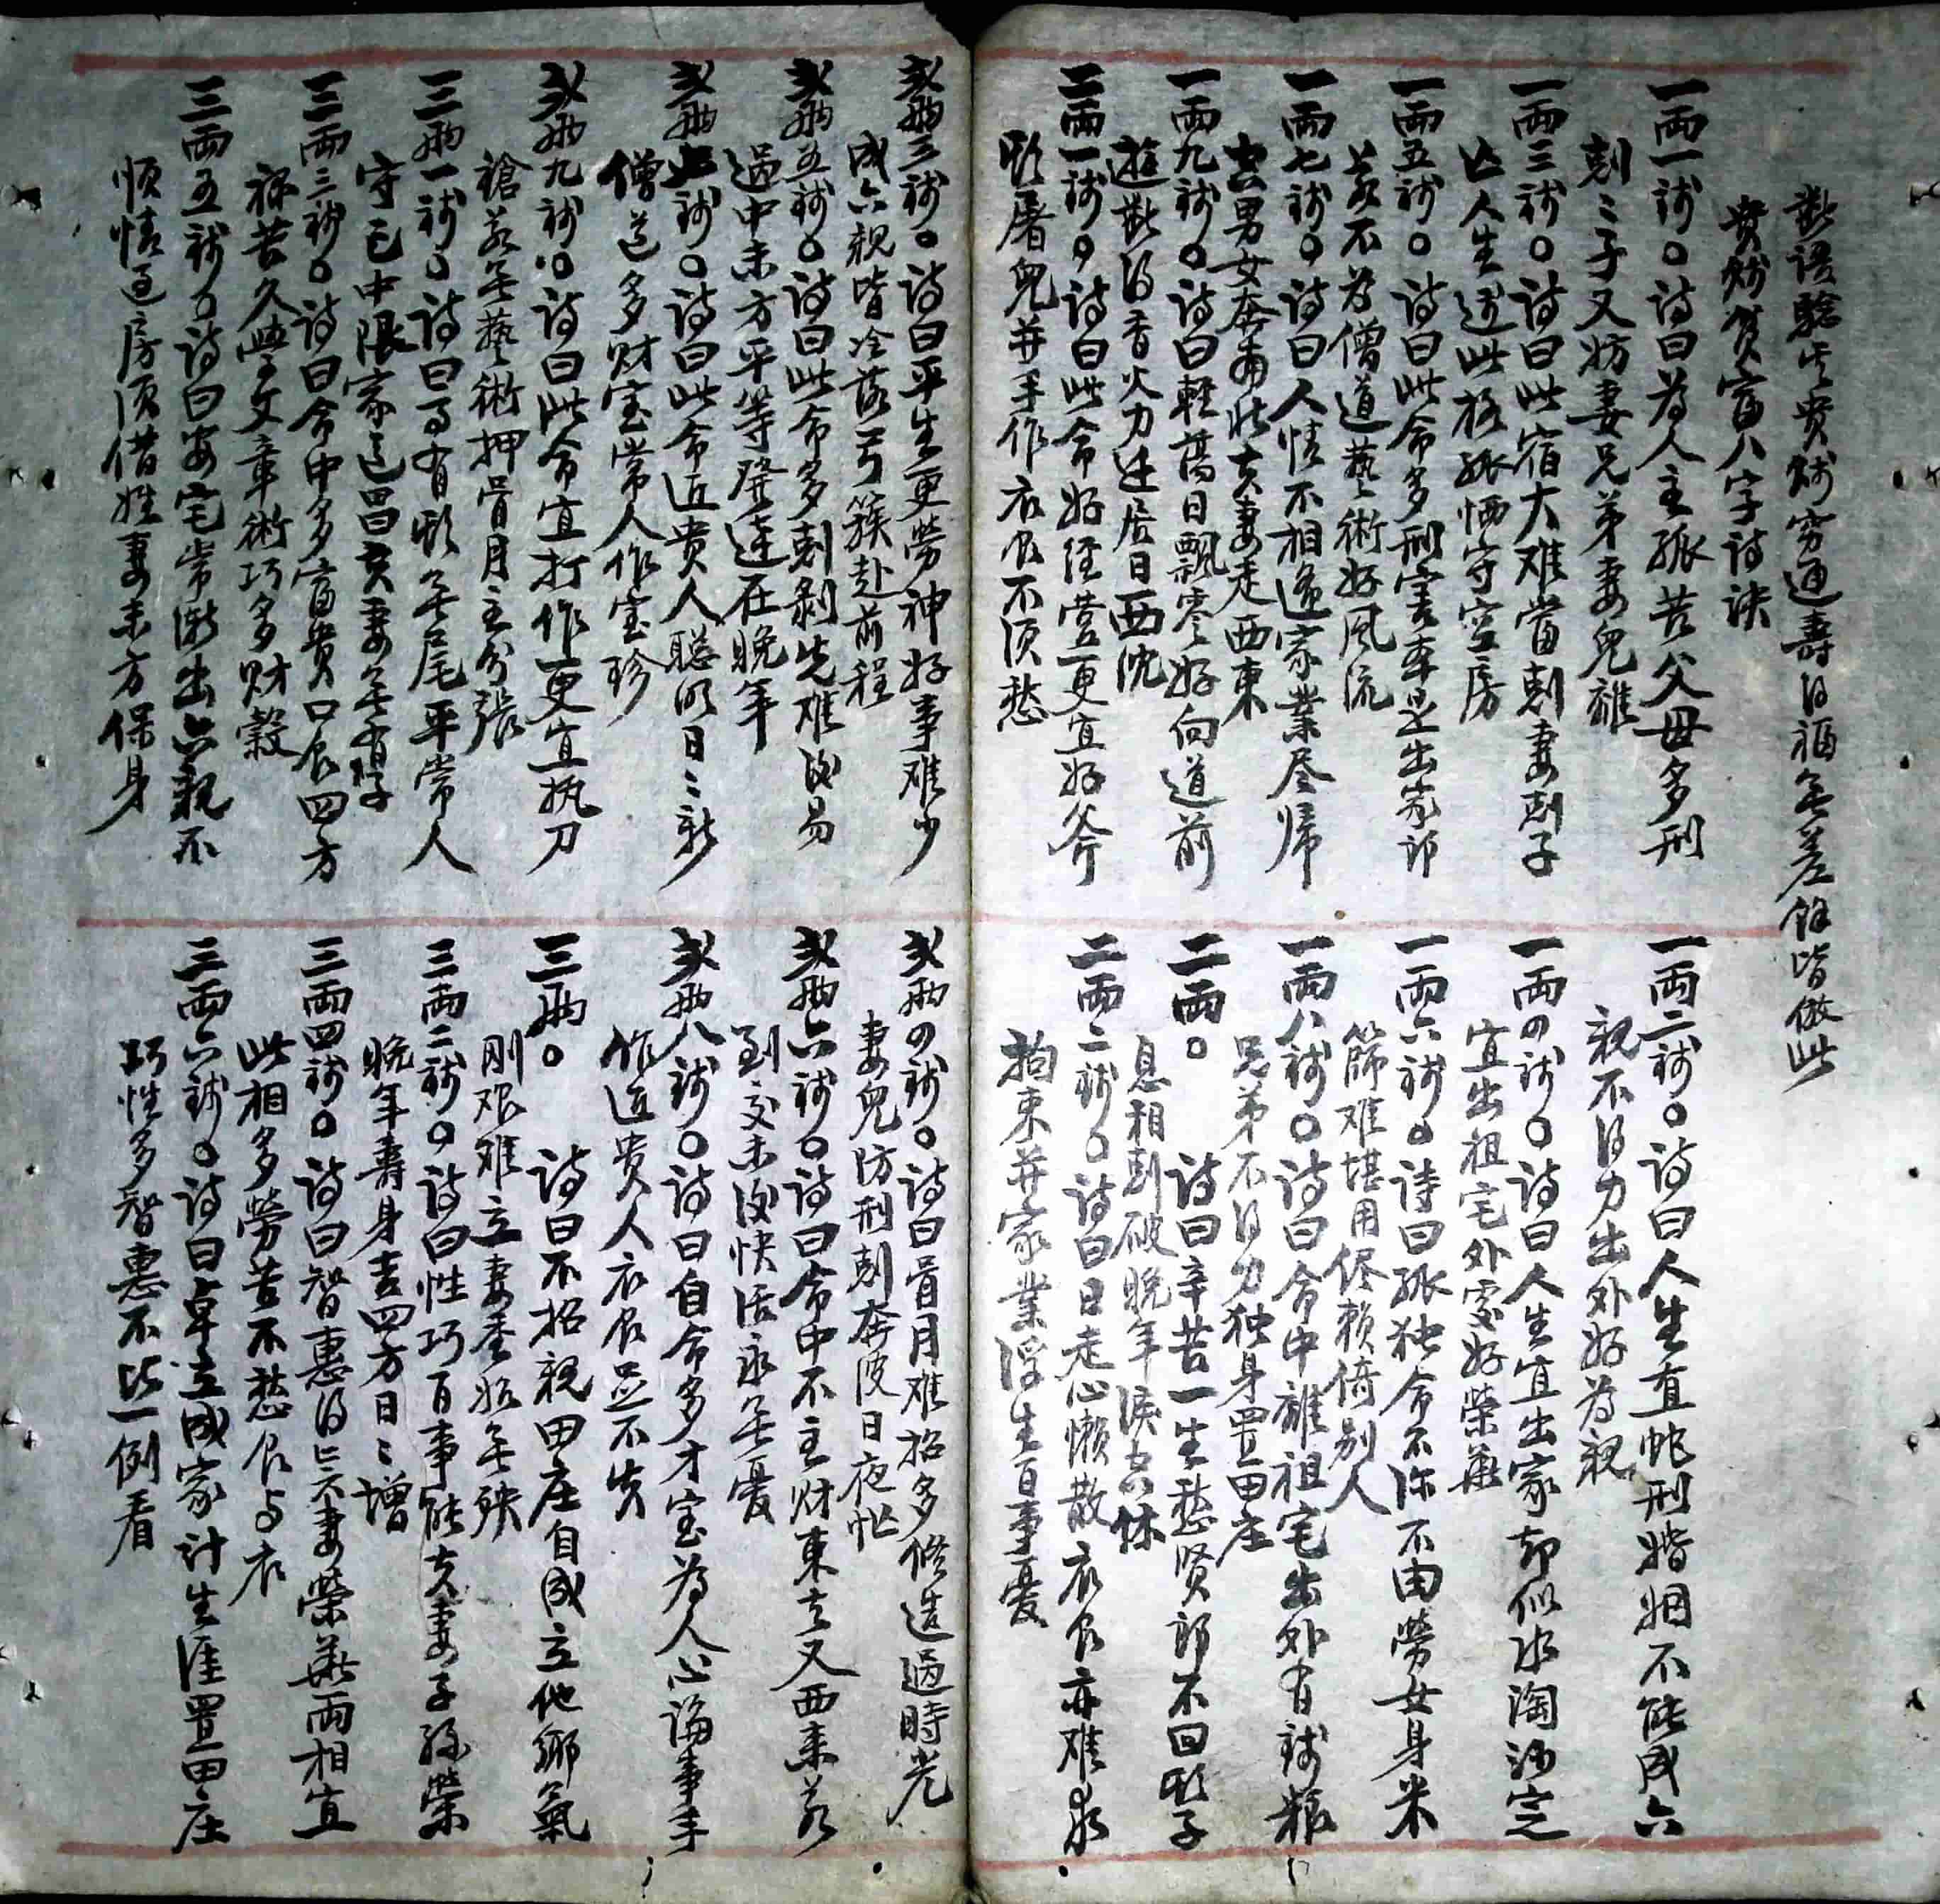 斷語驗其貴賤窮通壽得福無差餘皆倣此
貴賤貧富八字詩訣
一兩一錢。詩曰為人主孤苦父母多刑
剋〻子又妨妻兄弟妻兒離
一兩三錢。詩曰此宿大难當剋妻剋子
亡人生逢此格孤恓守空房
一兩五錢。詩曰此命多刑害畢是出家郎
若不為僧道藝術好風流
一兩七錢。詩曰人情不相逢家業尽歸
去男女奔南北夫妻走西東
一兩九錢。詩曰輕舊日飄零好向道前
遊斷得香火力廷居日西沈
二兩一錢。詩曰此命好经营更宜好斧
斷屠兒并手作衣食不须愁
一兩二錢。詩曰人生直蛇刑婚姻不能成六
親不得力出外好為親
一兩四錢。詩曰人生宜出家却似水淘沙定
宜出祖宅外處好榮華
一兩六錢。詩曰孤独命不深不由勞女身米
篩难堪用侭賴倚别人
一兩八錢。詩曰命中離祖宅出外有錢粮
兄弟不得力独身置田庄
二兩。詩曰辛苦一生愁贤郎不回頭子
息相剋破晚年淚六休
二兩二錢。詩曰日走心懶散衣食亦难求
拘束并家業浮生百事憂
弍兩三錢。詩曰平生更勞神好事难少
成六親皆冷落弓簇赴前程
弍兩五錢。詩曰此命多剋剝先难後易
過中末方平等發達在晚年
弍兩七錢。詩曰此命近贵人聪明日〻新
僧道多财宝常人作宝珍
弍兩九錢。詩曰此命宜打作更宜执刀
鎗若無藝術押骨月主分張
三兩一錢。詩曰百有頭無尾平常人
守己中限家道昌夫妻無有子
三兩三錢。詩曰命中多富贵口食四方
祿苦久學文章術巧多财穀
三兩五錢。詩曰安宅常漸出六親不
順情过房须借姓妻未方保身
弍兩四錢。詩曰骨月难招多修造過時光
妻兒防刑剋奔波日夜忙
弍兩六錢。詩曰命中不主财東去又西来若
到交末後快活永無憂
弍兩八錢。詩曰自命多才宝為人心論事手
作近贵人衣食並不失
三兩。詩曰不招親田庄自成立他鄉氣
刚艰难立妻委始無殃
三兩二錢。詩曰性巧百事能夫妻子孫榮
晚年壽身吉四方日〻增
三兩四錢。詩曰智惠得亡不妻榮華兩相宜
此相多勞苦不愁食与衣
三兩六錢。詩曰卓立成家计生涯置田庄
巧性多智惠不比一例看